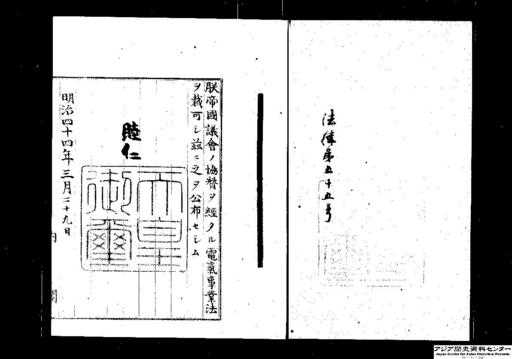 法律第五十五号
朕帝國議會ノ協贊ヲ經タル電氣事業法
ヲ裁可シ茲ニ之ヲ公布セシム
睦仁
天皇御璽
明治四十四年三月二十九日
内閣
アジア歴史資料センター
Japan Center for Asian Historical Records